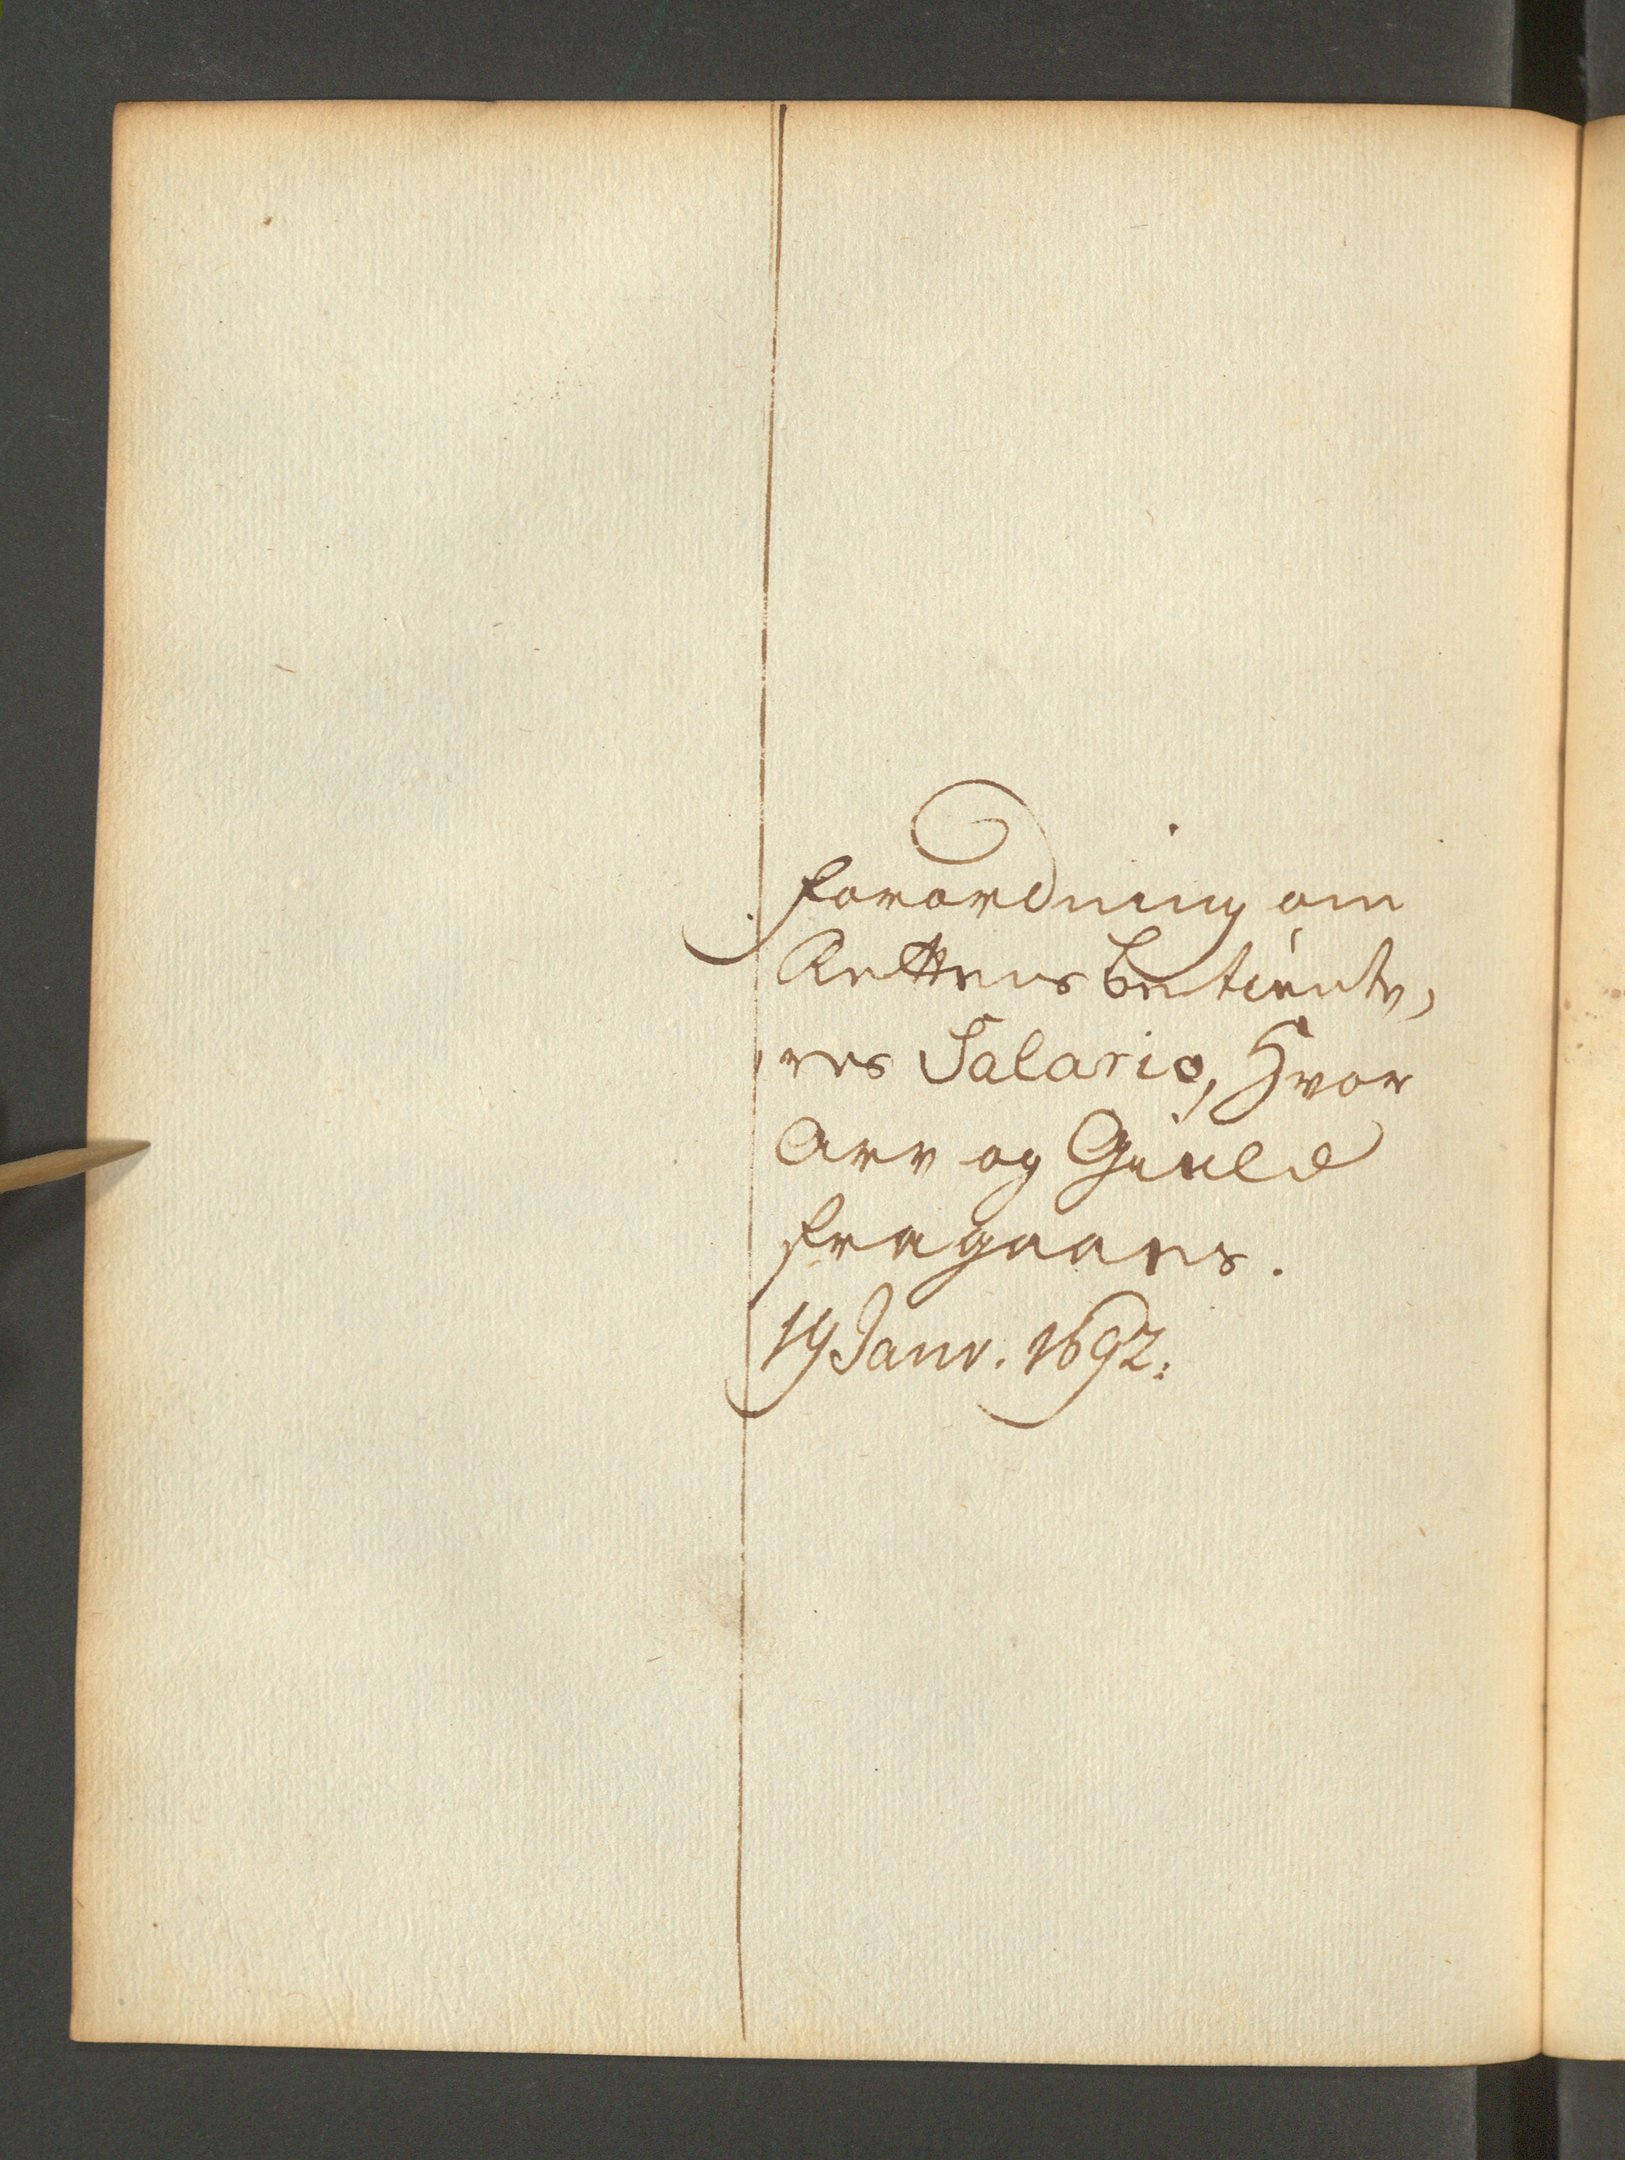 Forordning om
Rettens betiente,
res Salario, Hvor
Arv og Gield
fragaaes.
19 Janv. 1692.